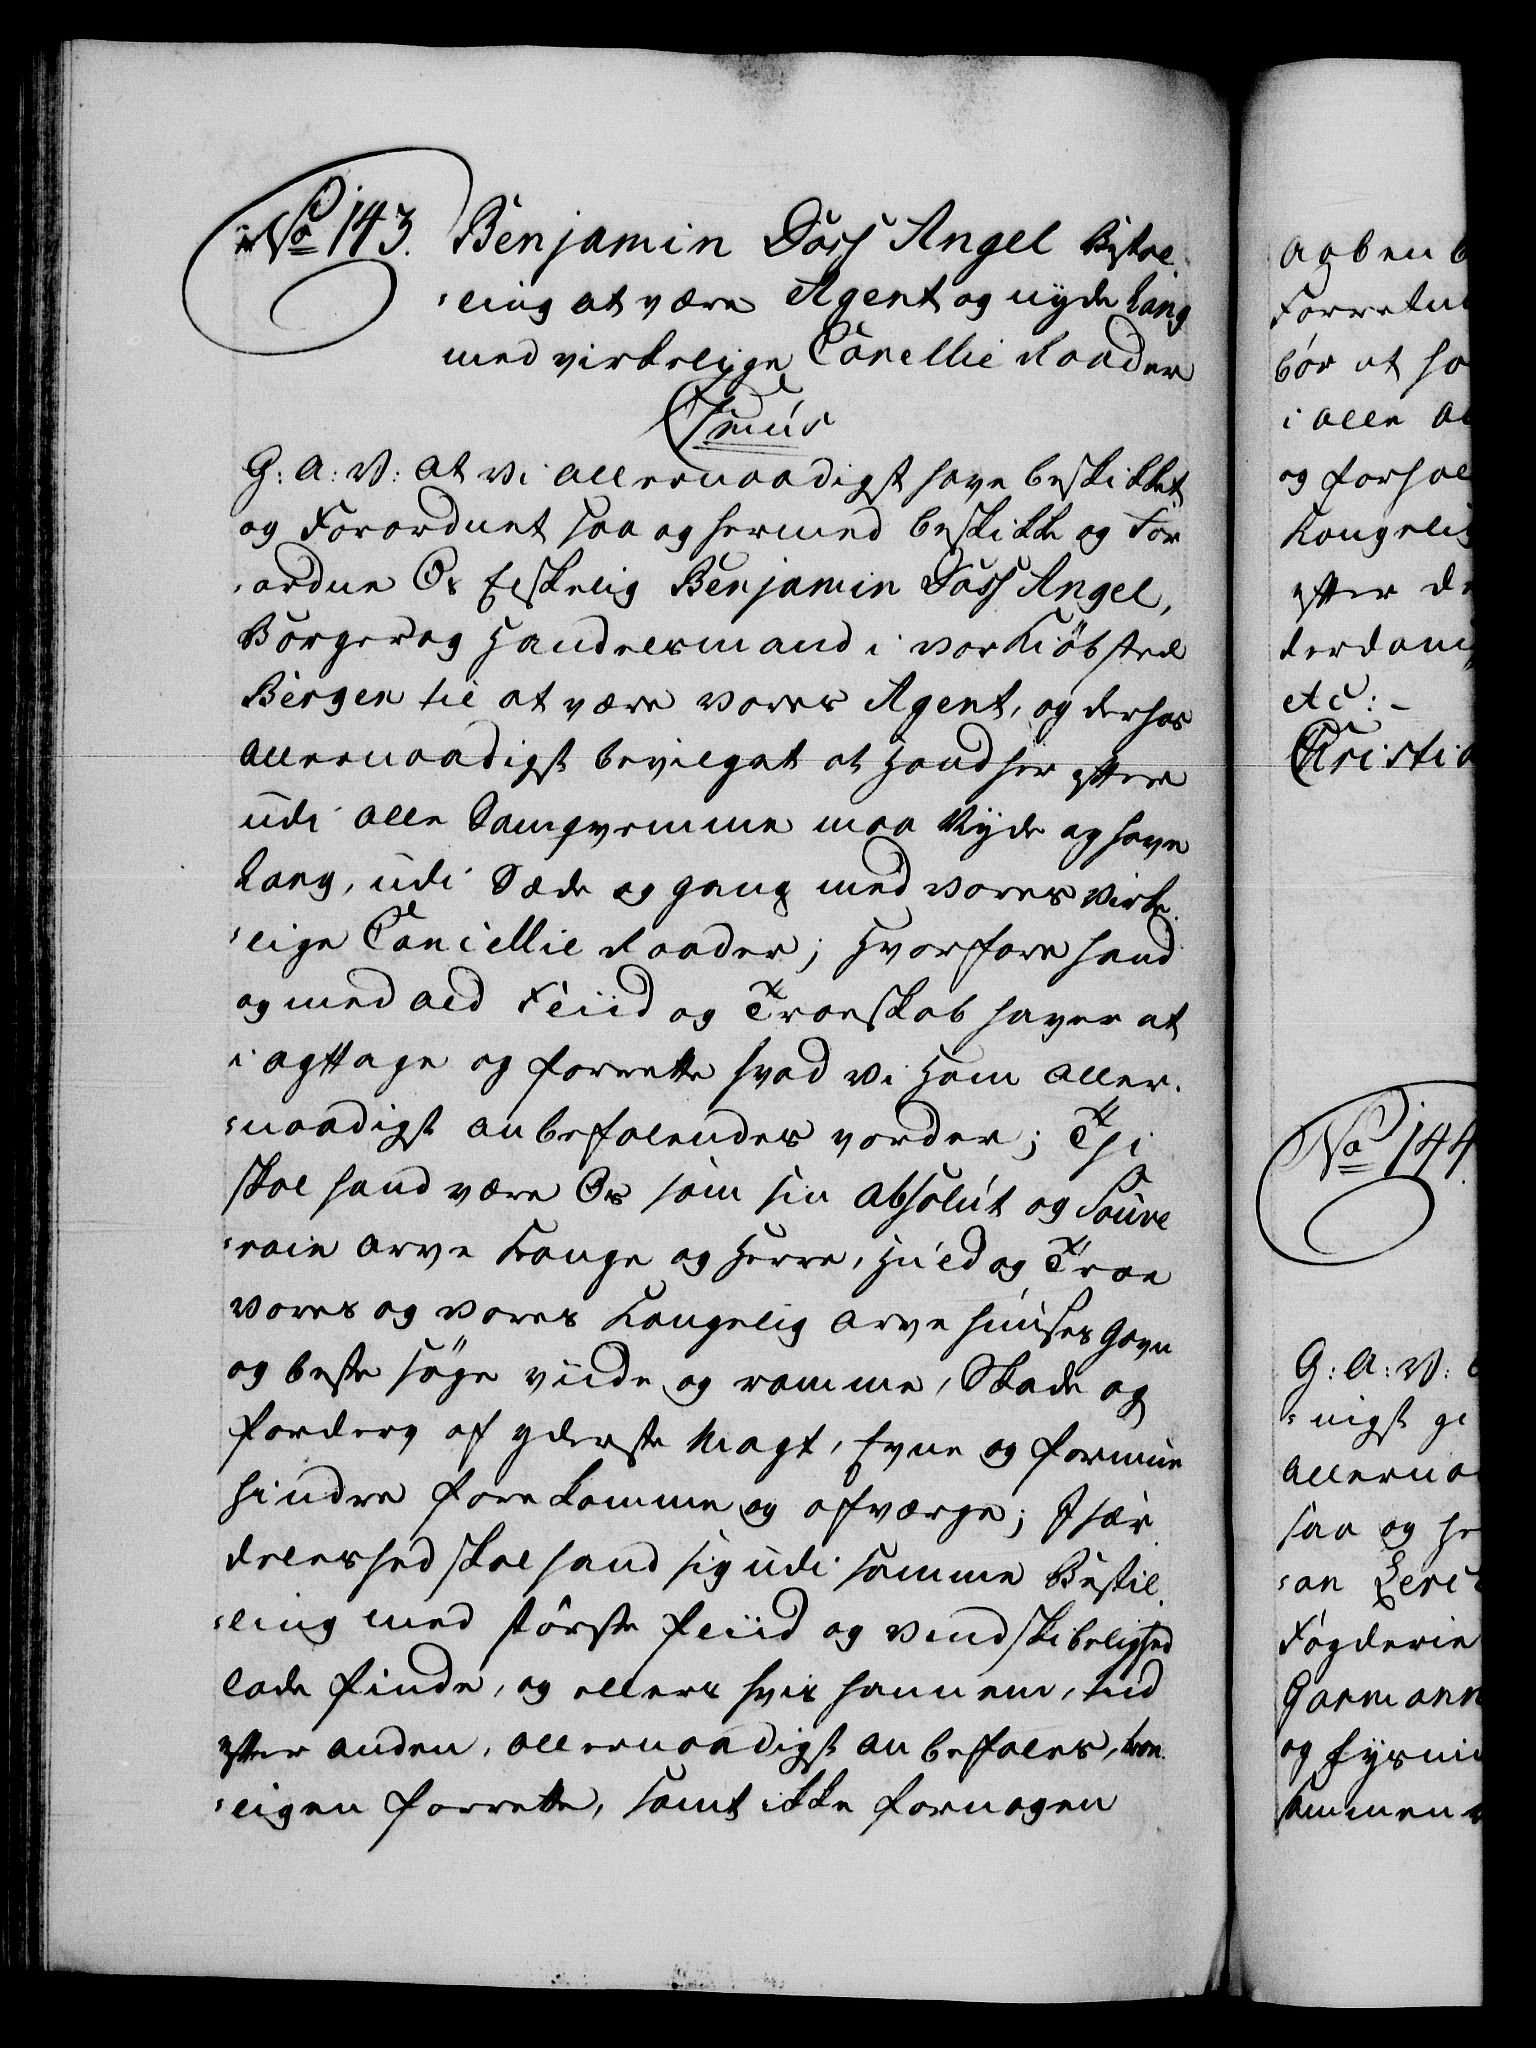 No 143. Benjamin Dass Angel Bestal=
=ling at være Agent og nyde Rang
med virkelige Cancellie Raader
Cmus
G: A: V: at Vi allernaadigst have beskikket
og Forordnet saa og hermed beskikke og For
=ordne Os Elskelig Benjamin Dass Angel,
Borger og Handelsmand i vor Kiøbsted
Bergen til at være vores Agent, og derhos
allernaadigst bevilget at Hand her efter
udi alle Samqvemme maa Nyde og have
Rang, udi Sæde og gang med vores virke
=lige Cancellie Raader; Hvorfore hand
og med ald Fliid og Troeskab haver at
i agttage og forrette hvad vi Ham aller=
=naadigst anbefalendes vorder; Thi
skal hand være Os som sin absolut og Souve
=rain Arve Konge og Herre, Huld og Troe
vores og vores Kongelig Arve Huuses Gavn
og beste søge viide og ramme, Skade og
forderv af yderste Magt, Evne og formue
hindre forekomme og afværge; I sær
deleshed skal hand sig udi samme Bestil=
=ling med største fliid og vindskibelighed
lade finde, og ellers hvis hannem, tid
efter anden, allernaadigst anbefales, troe=
=ligen forrette, samt ikke fornogen
aaben b
Forretni
bør at ha
i alle
og forhol
Kongelig
efter de
derdani
etc: -
Christia
No 144
G: A: V:
=nigst gi
allerna
saa og he
=an
Fogderie
Garmann
og